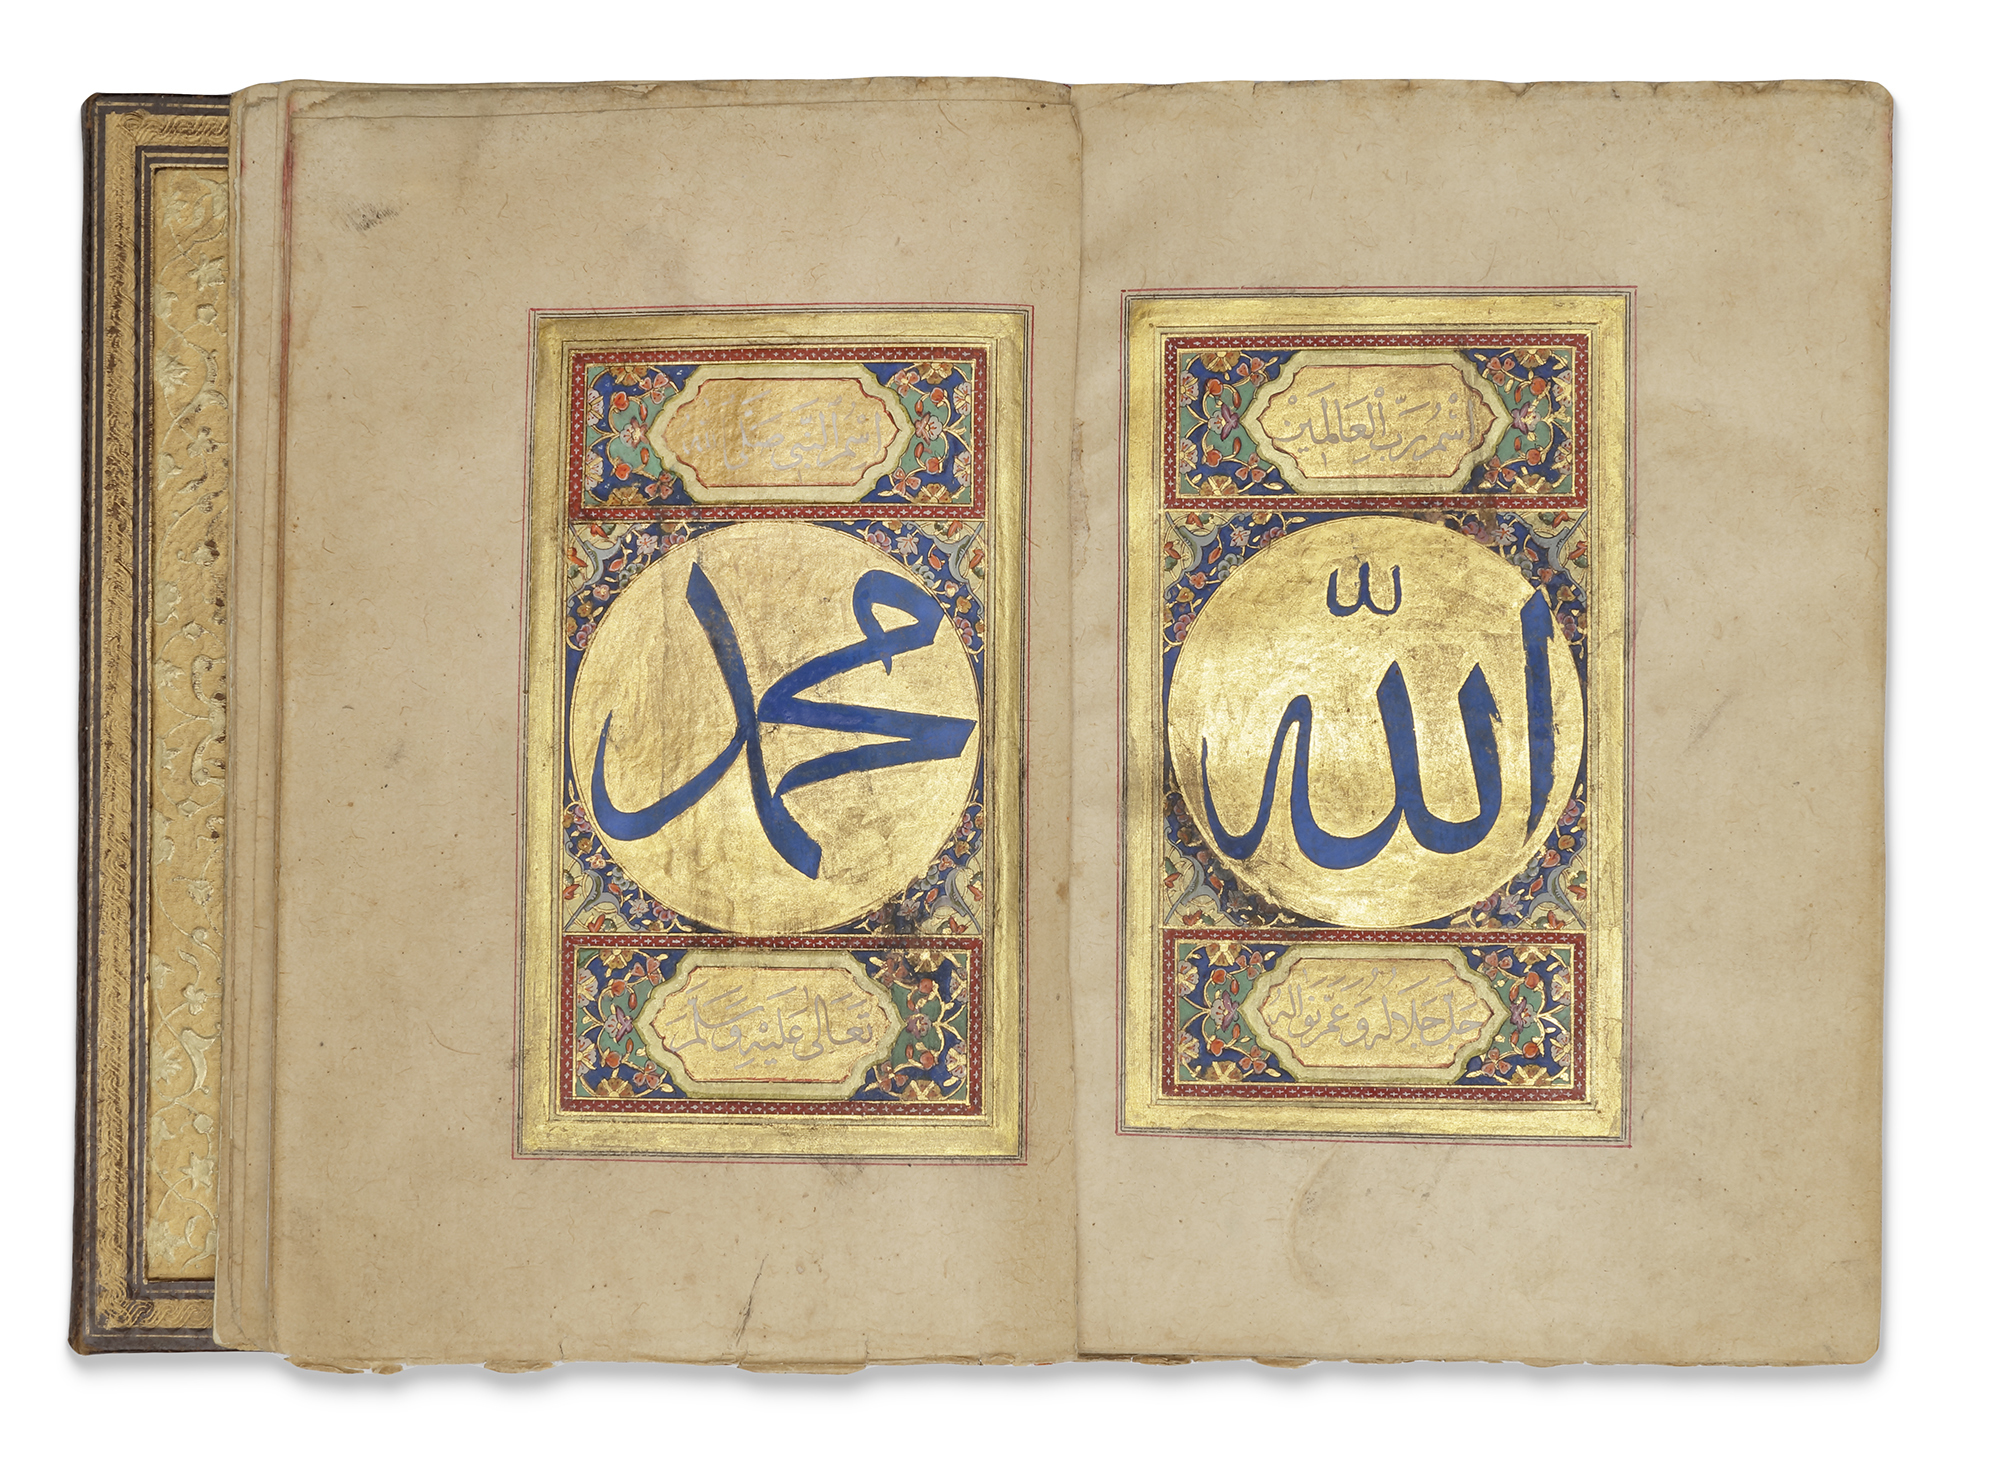 اسْمُ رَبِّ الْعَالَمِينَ
الله
جَلَّ جَلَالُهُ وَعَمَّ نَوَالُهُ
اسْمُ النَّبِيِّ صَلَّى اللهُ
محمد
تَعَالَى عَلَيْهِ وَسَلَّمَ